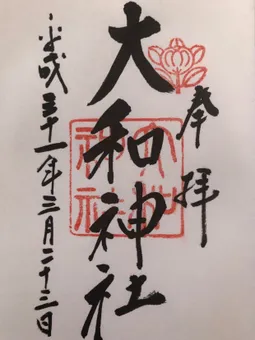 奉拝
大和神社
平成三十一年三月二十三日
大和神社